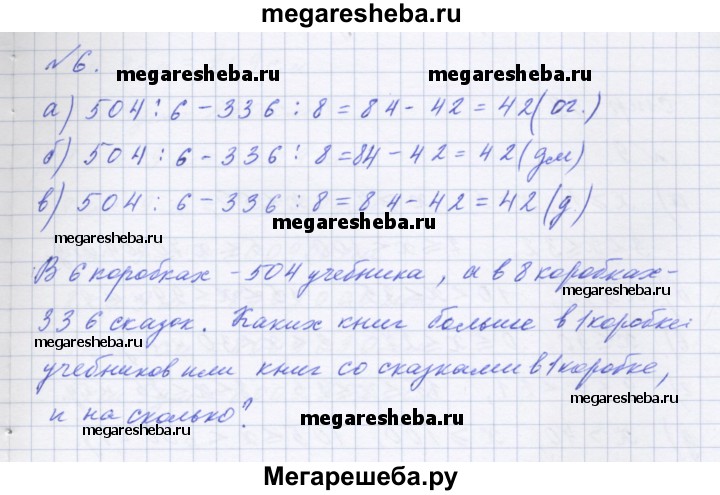 megaresheba.ru
№6.
megaresheba.ru megaresheba.ru
а) 504 : 6 - 336 : 8 = 84 - 42 = 42 (ог.)
б) 504 : 6 - 336 : 8 = 84 - 42 = 42 (дм)
в) 504 : 6 - 336 : 8 = 84 - 42 = 42 (д.)
megaresheba.ru megaresheba.ru
В 6 коробках - 504 учебника, а в 8 коробках -
megaresheba.ru
336 сказок. Каких книг больше в 1 коробке:
megaresheba.ru
учебников или книг со сказками в 1 коробке,
megaresheba.ru
и на сколько? megaresheba.ru
megaresheba.ru megaresheba.ru
Мегарешеба.ру